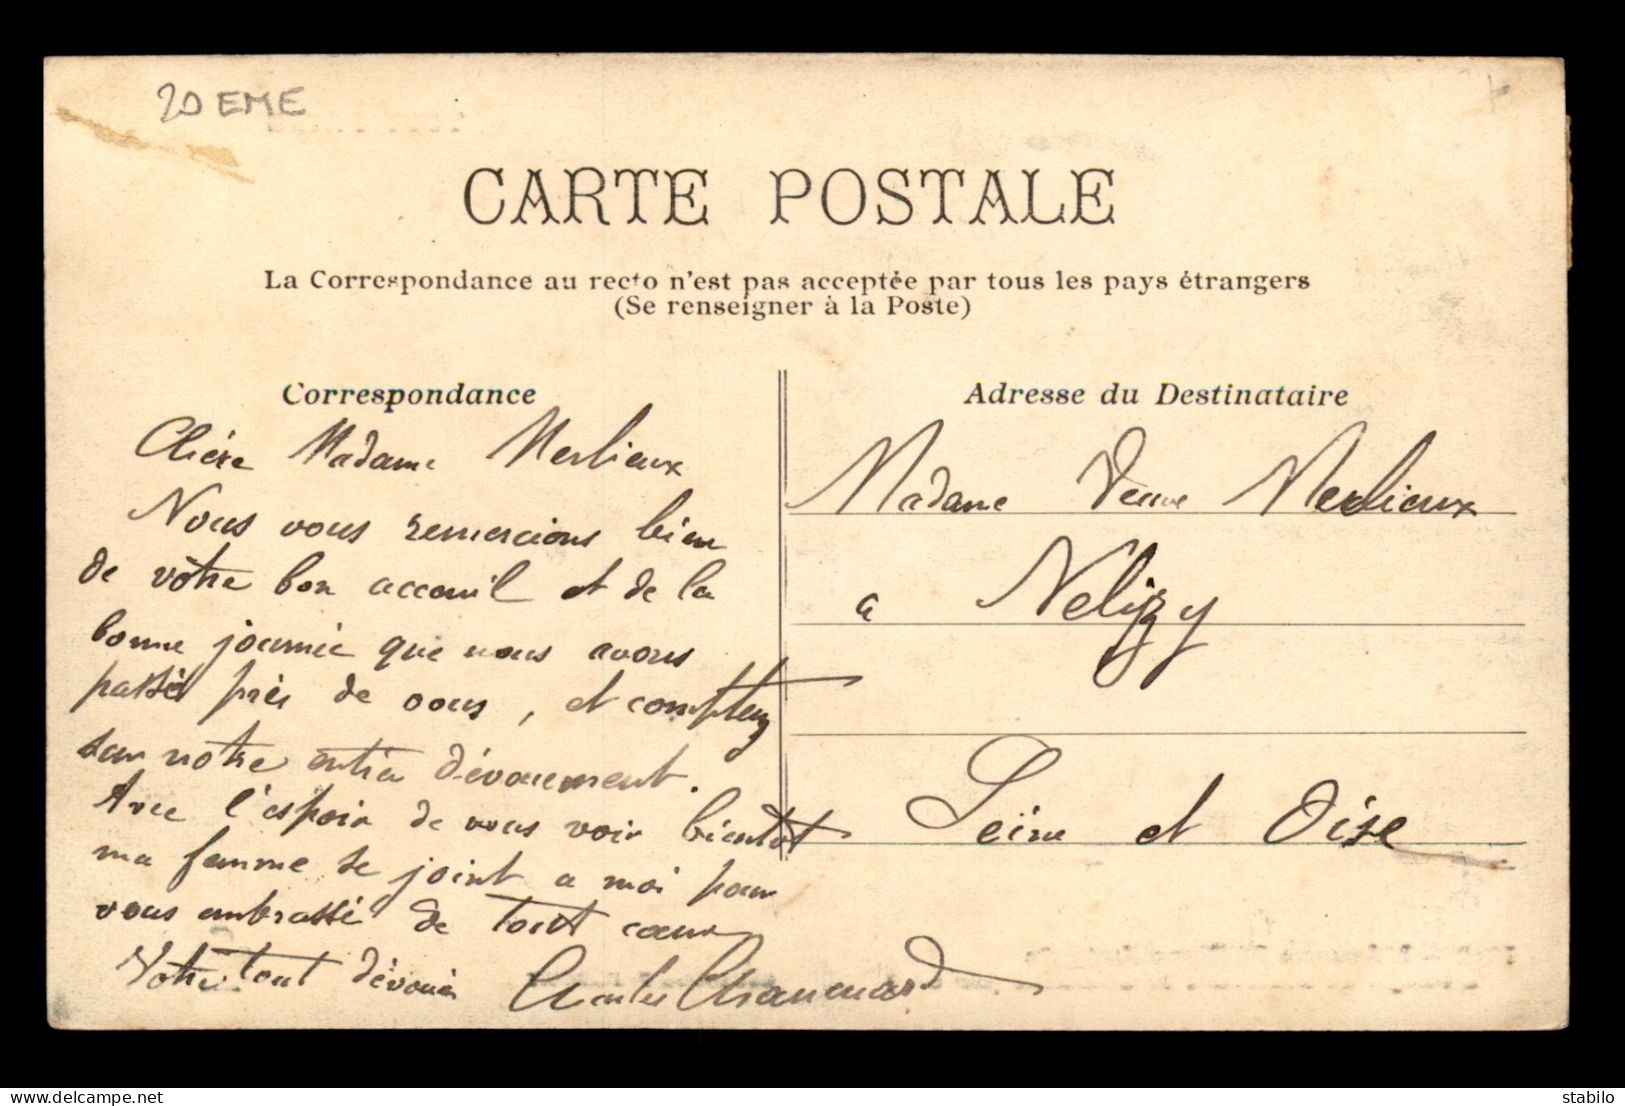 20 EME
CARTE POSTALE
La Correspondance au recto n'est pas acceptée par tous les pays étrangers
(Se renseigner à la Poste)
Correspondance
Chère Madame Merlieux
Nous vous remercions bien
de vôtre bon acceuil et de la
bonne journée que nous avons
passé près de vous, et comptez
sur notre entier dévouement.
Avec l'espoir de vous voir bientôt
ma femme se joint a moi pour
vous embrassé de tout cœur
Votre tout dévoué Charles
Adresse du Destinataire
Madame Veuve Merlieux
a Velizy
Seine et Oise
delcampe.net
stabilo